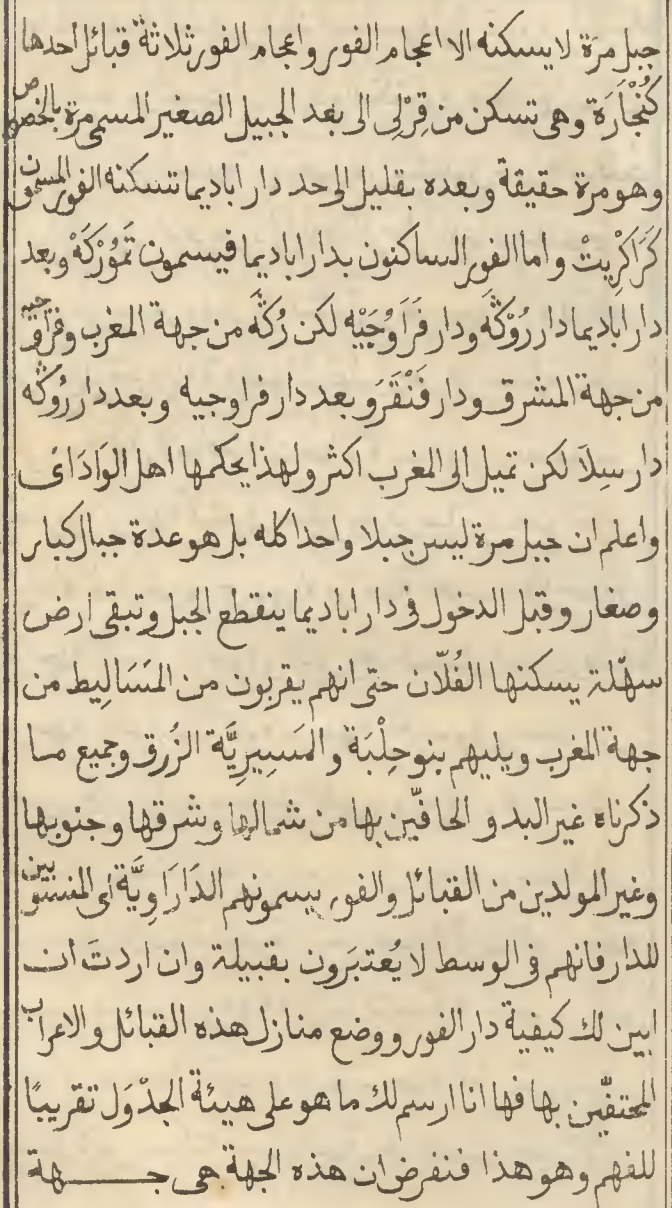 جبل مرّة لا يسكنه الا اعجام الفور واعجام الفور ثلاثة قبائل أحدها
كُنْجَارَة وهى تسكن من قِرْلِى الى بعد الجبيل الصغير المسمى مرة بالخصوص
وهو مرة حقيقة وبعده بقليل الى حد دار اباديما تسكنه الفور المسمون
كَرَاكْرِيتْ واما الفور الساكنون بدار اباديما فيسمون تَمُوْرْكَهْ وبعد
دار اباديما دار رُوْنْكَه ودار فَرَاوْجَيْه لكن رُنْكَه من جهة المغرب وفراوجيه
من جهة المشرق ودار فَنْقَرَو بعد دار فراوجيه وبعد دار رُونْكَه
دار سِلاَ لكن تميل الى المغرب اكثر ولهذا يحكمها اهل الوَادَائ
واعلم ان جبل مرة ليس جبلا واحدا كله بل هو عدة جبال كبار
وصغار وقبل الدخول فى دار اباديما ينقطع الجبل وتبقى أرض
سهلة يسكنها الفُلّان حتى انهم يقربون من المَسَالِيط من
جهة المغرب ويليهم بنو حِلْبَة والمَسِيرِيَّة الزُرق وجميع ما
ذكرناه غير البدو الحافّين بها من شمالها وشرقها وجنوبها
وغير المولدين من القبائل والفور يسمونهم الدَارَاوِيَّة أى المنسوبين
للدار فانهم فى الوسط لا يُعتبَرون بقبيلة وان اردتَ ان
ابين لك كيفية دار الفور ووضع منازل هذه القبائل والاعراب
المحتفّين بها فها انا ارسم لك ما هو على هيئة الجدْوَل تقريبًا
للفهم وهو هذا فنفرض ان هذه الجهة هى جـــهة